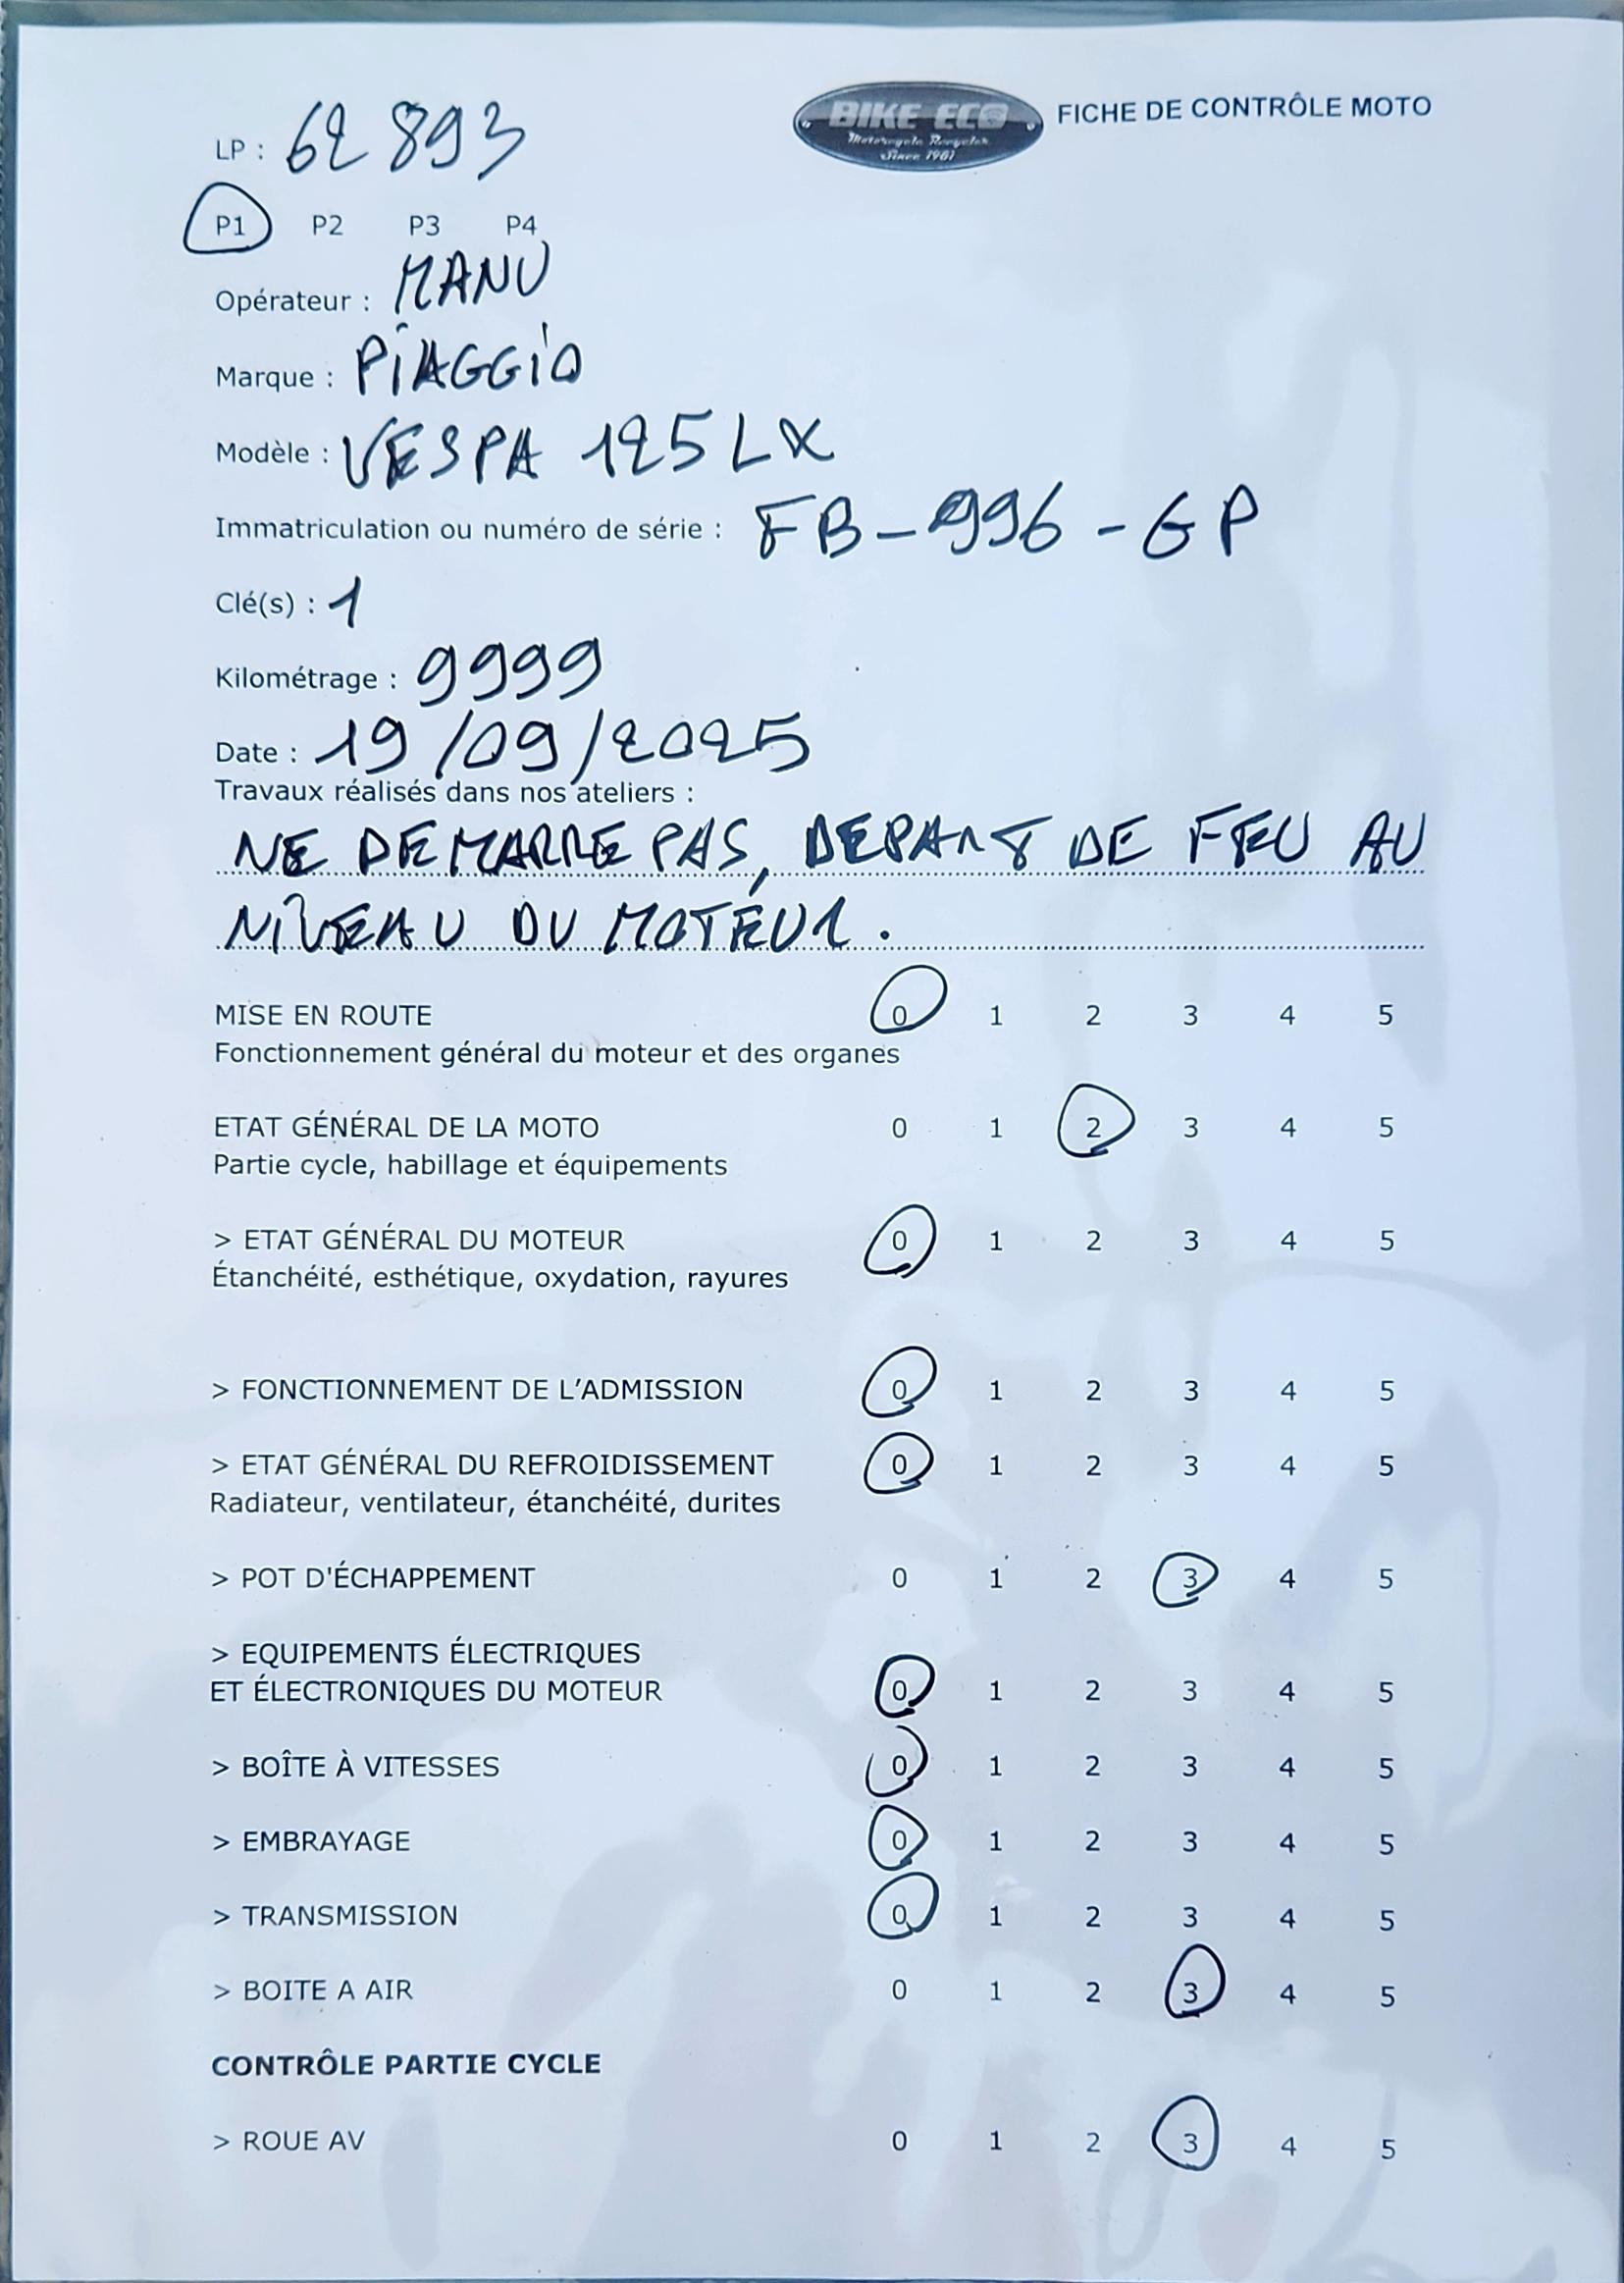 BIKE ECO
Motorcycle Recycler
Since 1981
FICHE DE CONTRÔLE MOTO
LP : 62 893
P1 P2 P3 P4
Opérateur : MANU
Marque : PIAGGIO
Modèle : VESPA 125 LX
Immatriculation ou numéro de série : FB-996-GP
Clé(s) : 1
Kilométrage : 9999
Date : 19/09/2025
Travaux réalisés dans nos ateliers :
NE DEMARRE PAS, DEPART DE FEU AU
NIVEAU DU MOTEUR.
MISE EN ROUTE 0 1 2 3 4 5
Fonctionnement général du moteur et des organes
ETAT GÉNÉRAL DE LA MOTO 0 1 2 3 4 5
Partie cycle, habillage et équipements
> ETAT GÉNÉRAL DU MOTEUR 0 1 2 3 4 5
Étanchéité, esthétique, oxydation, rayures
> FONCTIONNEMENT DE L'ADMISSION 0 1 2 3 4 5
> ETAT GÉNÉRAL DU REFROIDISSEMENT 0 1 2 3 4 5
Radiateur, ventilateur, étanchéité, durites
> POT D'ÉCHAPPEMENT 0 1 2 3 4 5
> EQUIPEMENTS ÉLECTRIQUES
ET ÉLECTRONIQUES DU MOTEUR 0 1 2 3 4 5
> BOÎTE À VITESSES 0 1 2 3 4 5
> EMBRAYAGE 0 1 2 3 4 5
> TRANSMISSION 0 1 2 3 4 5
> BOITE A AIR 0 1 2 3 4 5
CONTRÔLE PARTIE CYCLE
> ROUE AV 0 1 2 3 4 5